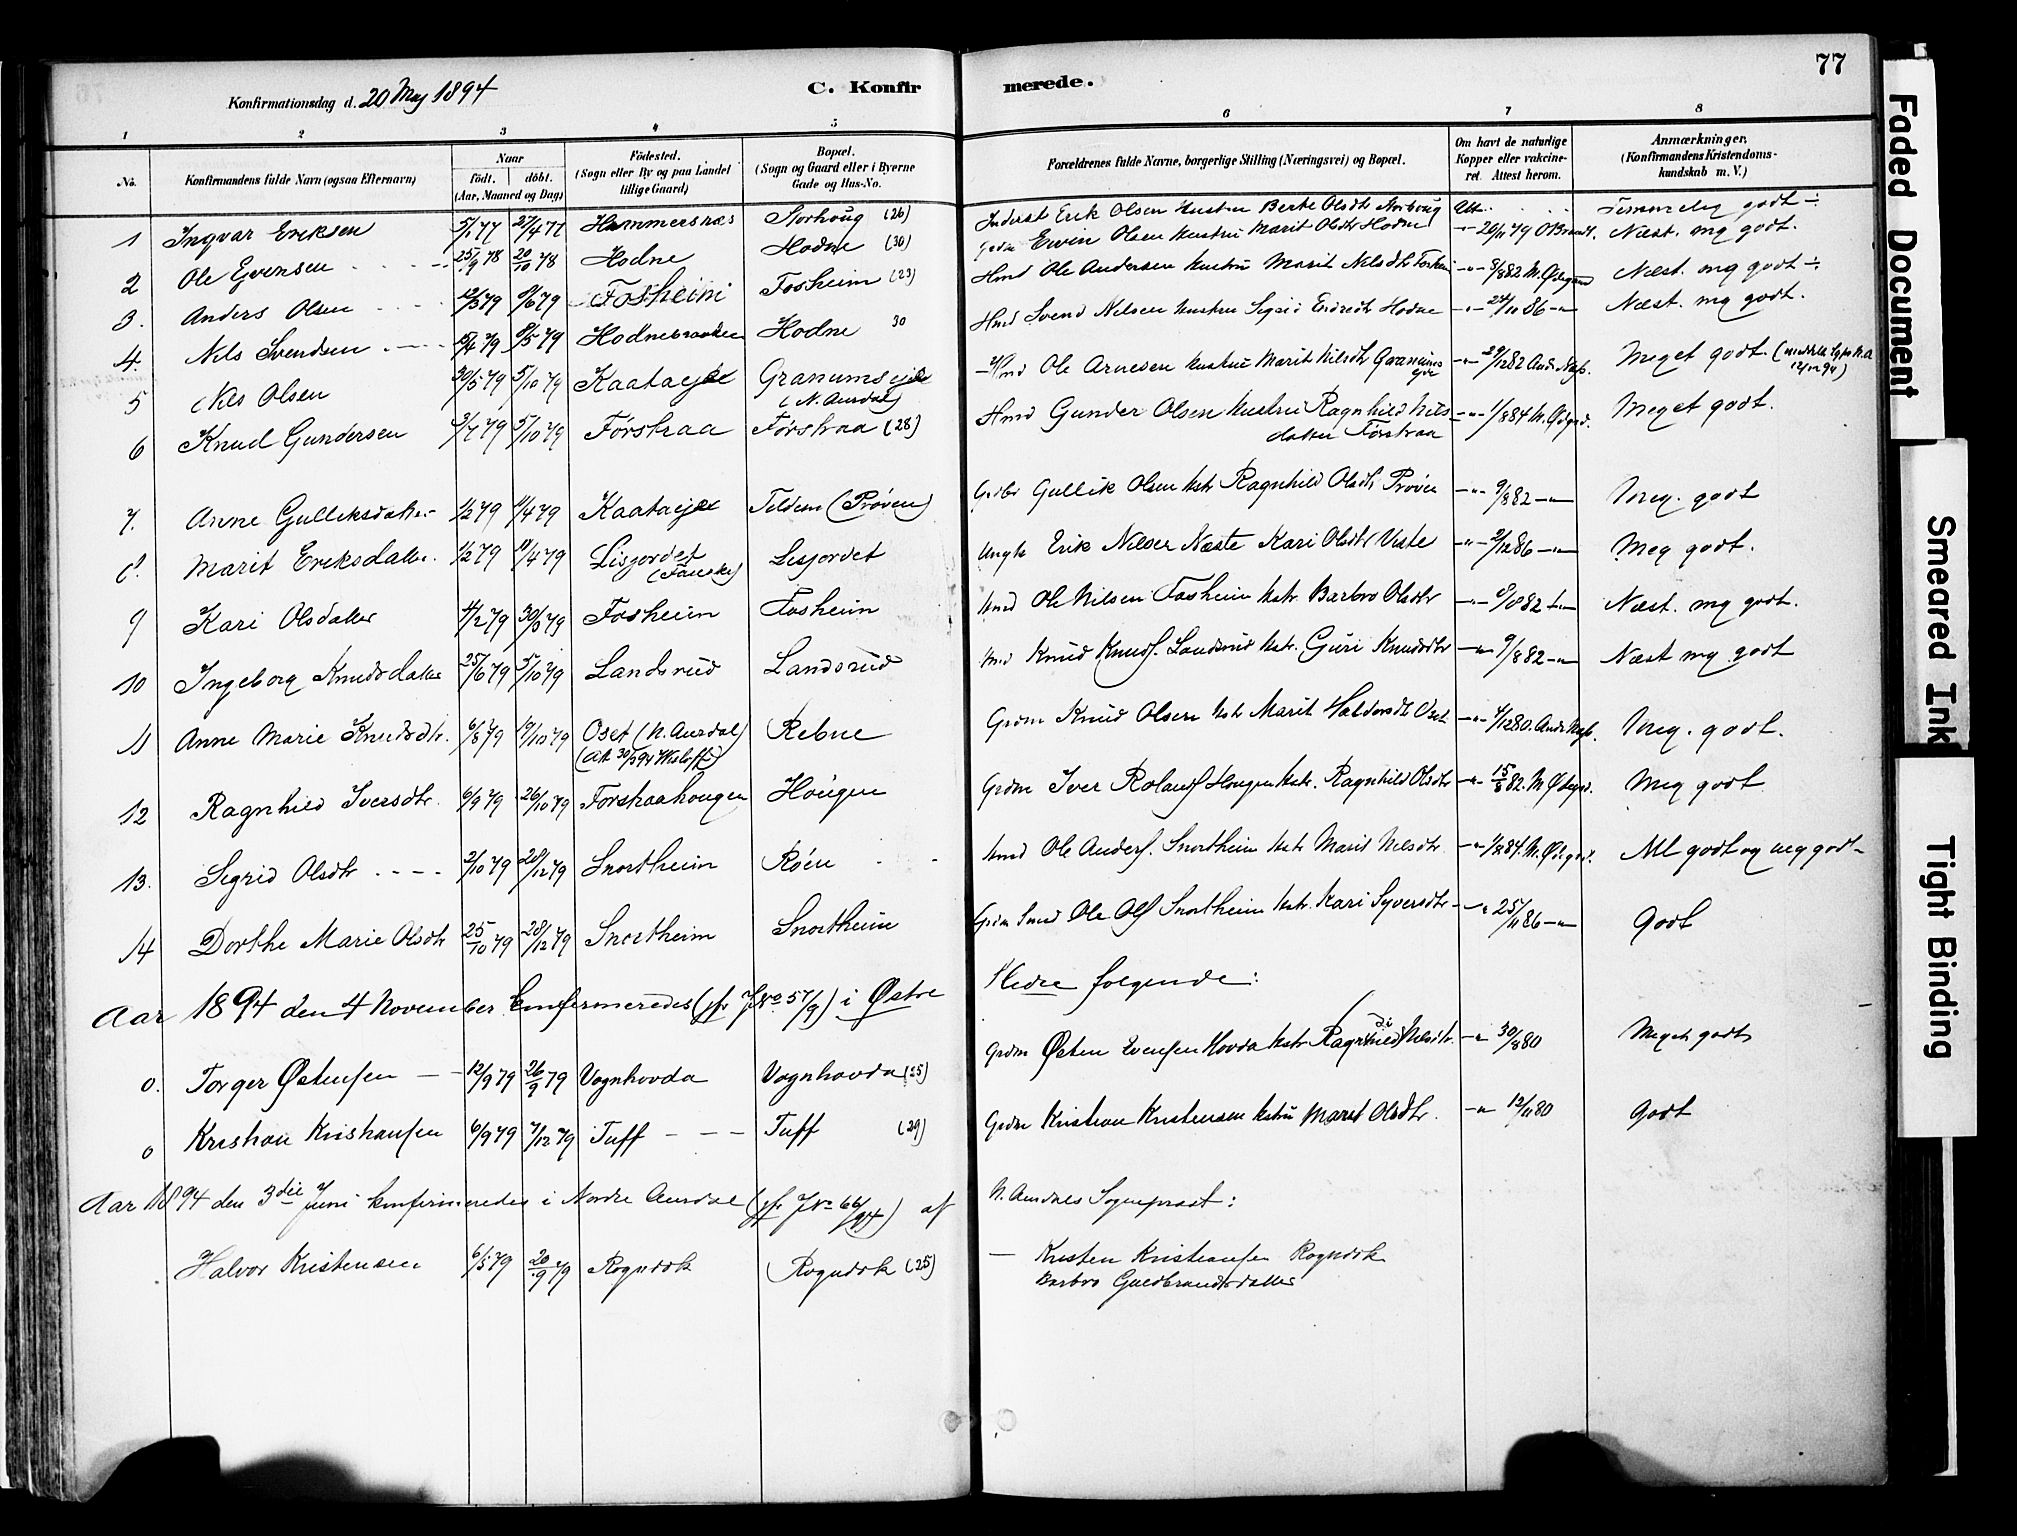 77
Konfirmationsdag d. 20 Maj 1894 C. Konfirmerede.
1 2 3 4 5 6 7 8
No. Konfirmandens fulde Navn (ogsaa Efternavn) Naar födt. döbt. (Aar, Maaned og Dag) Födested. (Sogn eller By og paa Landet tillige Gaard) Bopæl. (Sogn og Gaard eller i Byerne Gade og Hus-No. Forældrenes fulde Navne, borgerlige Stilling (Næringsvei) og Bopæl. Om havt de naturlige Kopper eller vakcineret. Attest herom. Anmærkninger. (Konfirmandens Kristendomskundskab m. V.)
1 Ingvar Eriksen 5/1 77 27/4 77 Hammersnæs Storhoug (26) Inderst Erik Olsen Hustru Berte Olsdtr Att. Temmelig godt ÷
2 Ole Evensen 25/9 78 20/10 78 Hodne Hodne (30) Olsen Hustru Marit Olsdtr Hodne 20/11 79 Næst. mg godt.
3. Anders Olsen 6/79 Fosheim Fosheim (23) Hmd Ole Andersen Hustru Marit Nilsdtr 8/8 82 M. Næst. mg godt ÷
4. Nils Svendsen 79 5 79 Hodnebraaten Hodne 30 Hmd Svend Nilsen Hustru Sigrid Hodne 24/11 86 Næst. mg godt.
5 Nils Olsen 30/5 79 5/10 79 Kaataejet Granumsejet (N. Aurdal) Hmd Ole Arnesen Hustru Marit Nilsdtr 29/12 82 Meget godt.
6 Knud Gundersen 3/7 79 5/10 79 Förstraa Förstraa (28) Hmd Gunder Olsen Hustru Ragnhild Nils
datter Förstraa 1/8 84 M. Meget godt.
7. Anne Gulliksdatter 1/2 79 11/4 79 Kaataejet Teldem (Pröven) Gullik Olsen Hstr Ragnhild Olsdtr Pröven 9/8 82 Meg. godt
8. Marit Eriksdatter 1/2 79 11/4 79 Lisjordet Lisjordet Ungk Erik Nilsen Næste Kari Olsdtr 2/12 86 Meg godt.
9 Kari Olsdatter 11/2 79 30/3 79 Fosheim Fosheim Hmd Ole Nilsen Fosheim Hstr. Barbro Olsdtr 82 Næst. mg godt.
10 Ingeborg Knudsdatter 25/6 79 5/10 79 Landsrud Landsrud Hmd Knud Knuds. Landsrud Hstr. Guri Knudsdtr 9/8 82 Næst mg godt
11 Anne Marie Knudsdtr. 6/8 79 19/10 79 Oset (N. Aurdal) Rebne Grdm Knud Olsen Hstr Marit Haldorsdtr Oset 4/12 80. Meg. godt.
12 Ragnhild Iversdtr. 6/9 79 26/10 79 Forstraahougen Hougen Grdm Iver Rolandss Hougen Hstr. Ragnhild Olsdtr 15/8 82. M Meg godt
13. Sigrid Olsdtr 2/10 79 28/12 79 Snortheim Röen Hmd Ole Anders. Snortheim Hstr Marit Nilsdtr. 84. M. Ml godt og meg godt
14 Dorthe Marie Olsdtr 25/10 79 28/12 79 Snortheim Snortheim Grdm Smed Ole Ols Snortheim Hstr. Kari Syversdtr 25/11 86 Godt
Aar 1894 den 4 November konfirmeredes (jfr JNo 57/9) i Østre Slidre folgende:
0. Torger Østensen 12/9 79 26/9 79 Vognhovda Vognhovda (25) Grdm Østen Evensen Hovda Hstr Ragndi Nilsdtr. 30/8 80 Meget godt
0 Kristian Kristiansen 6/9 79 7/12 79 Tuff Tuff (29) Grdm Kristian Kristensen Hstru Marit Olsdtr. 12/11 80 Godt
Aar 1894 den 3die Juni konfirmeredes i Nordre Aurdal (jfr. JNo 66/94) af N. Aurdals Sogneprest:
Halvor Kristensen 6/5 79 20/9 79 Rogndok Rogndok (25) Kristen Kristiansen Rogndok
Barbro Guldbrandsdatter
Faded Document
Smeared Ink
Tight Binding